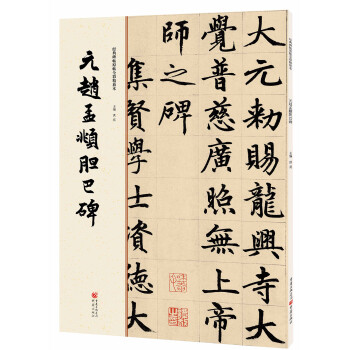 大元勑賜龍興寺大
覺普慈廣照無上帝
師之碑
集賢學士資德大
元趙孟頫胆巴碑